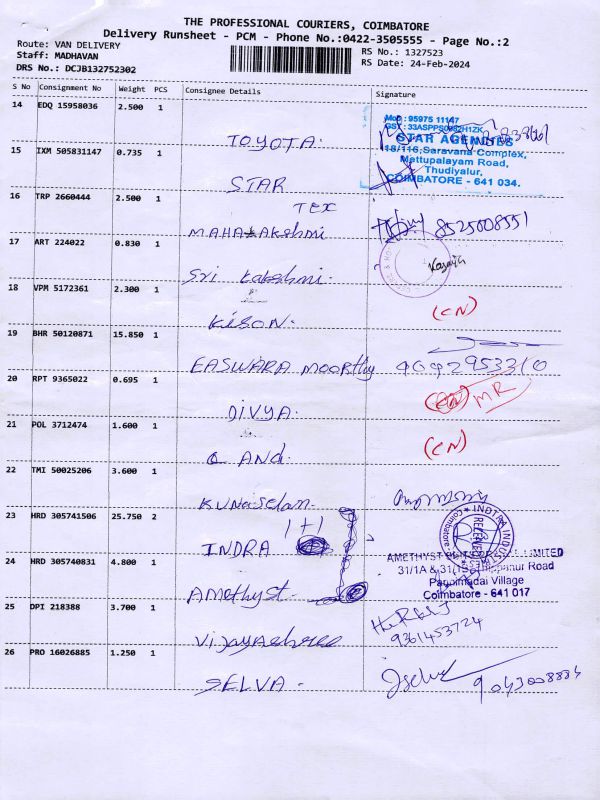 THE PROFESSIONAL COURIERS, COIMBATORE
Delivery Runsheet - PCM - Phone No.:0422-3505555 - Page No.:2
Route: VAN DELIVERY
Staff: MADHAVAN
DRS No.: DCJB132752302
RS No.: 1327523
RS Date: 24-Feb-2024
S No Consignment No Weight PCS Consignee Details Signature
14 EDQ 15958036 2.500 1 TOYOTA.
Mob : 95975 11147
GST : 33ASPPS0982H1ZK
STAR AGENCIES
118/116, Saravana Complex,
Mettupalayam Road,
Thudiyalur,
COIMBATORE - 641 034.
15 IXM 505831147 0.735 1 STAR
16 TRP 2660444 2.500 1 MAHALAKshmi TEX 8525008551
17 ART 224022 0.830 1 Sri Lakshmi.
18 VPM 5172361 2.300 1 KISON. (CN)
19 BHR 50120871 15.850 1 EASWARA MOORthy 9092953310
20 RPT 9365022 0.695 1 DIVYA. MR
21 POL 3712474 1.600 1 C AND. (CN)
22 TMI 50025206 3.600 1 KUNASelan.
23 HRD 305741506 25.750 2 INDRA 1+1
INDIRA INDU
RECEIVED
Coimbatore
24 HRD 305740831 4.800 1 AMethyst.
AMETHYST LIMITED
31/1A & 31/1 Road
Pannimadai Village
Coimbatore - 641 017
25 DPI 218388 3.700 1 VIJAYAshree
9361453724
26 PRO 16026885 1.250 1 SELVA. 9043008884